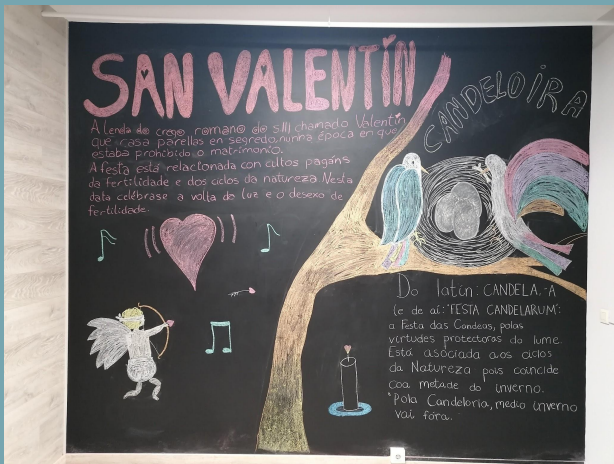 SAN VALENTÍN
A lenda do crego romano do s.III chamado Valentín
que casa parellas en segredo, nunha época en que
estaba prohibido o matrimonio.
A festa está relacionada con cultos pagáns
da fertilidade e dos ciclos da natureza. Nesta
data celébrase a volta da luz e o desexo de
fertilidade.
CANDELOIRA
Do latín: CANDELA,-A
e de aí: "FESTA CANDELARUM":
a Festa das Candeas, polas
virtudes protectoras do lume.
Está asociada aos ciclos
da Natureza pois coincide
coa metade do inverno.
"Pola Candeloria, medio inverno
vai fóra.